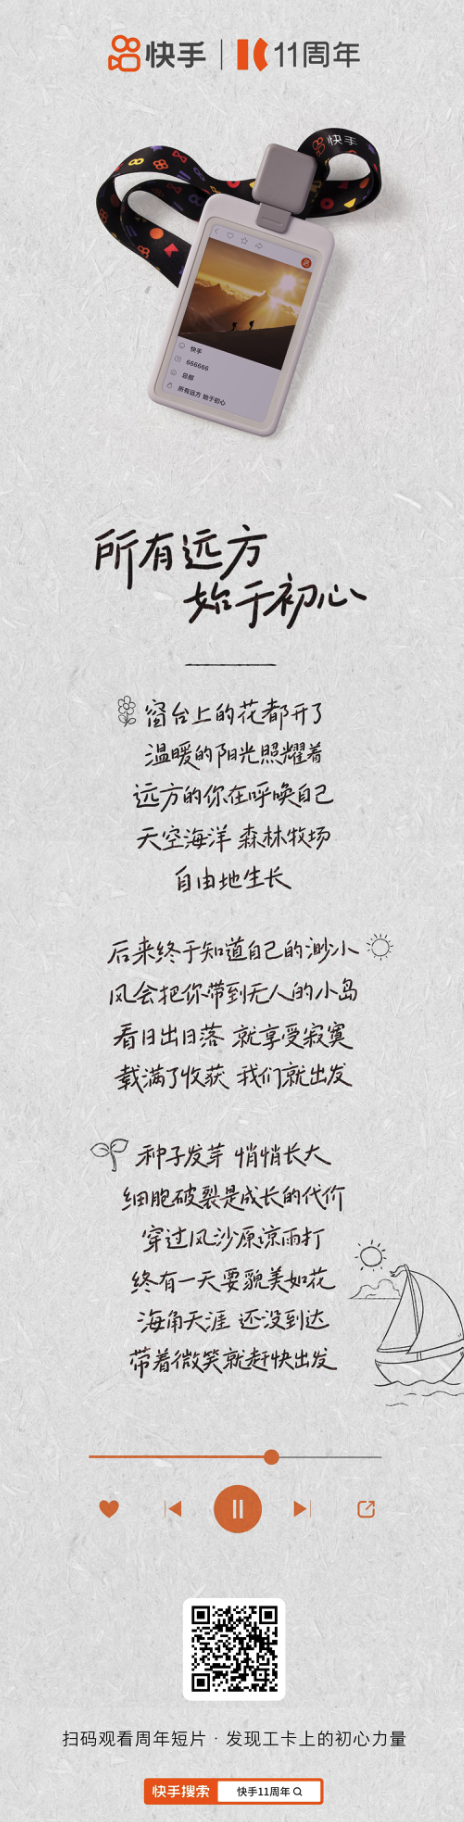 快手
11周年
快手
快手
666666
所有远方 始于初心
所有远方
始于初心
窗台上的花都开了
温暖的阳光照耀着
远方的你在呼唤自己
天空海洋 森林牧场
自由地生长
后来终于知道自己的渺小
风会把你带到无人的小岛
看日出日落 就享受寂寞
载满了收获 我们就出发
种子发芽 悄悄长大
细胞破裂是成长的代价
穿过风沙原谅雨打
终有一天要貌美如花
海角天涯 还没到达
带着微笑就赶快出发
扫码观看周年短片 · 发现工卡上的初心力量
快手搜索
快手11周年